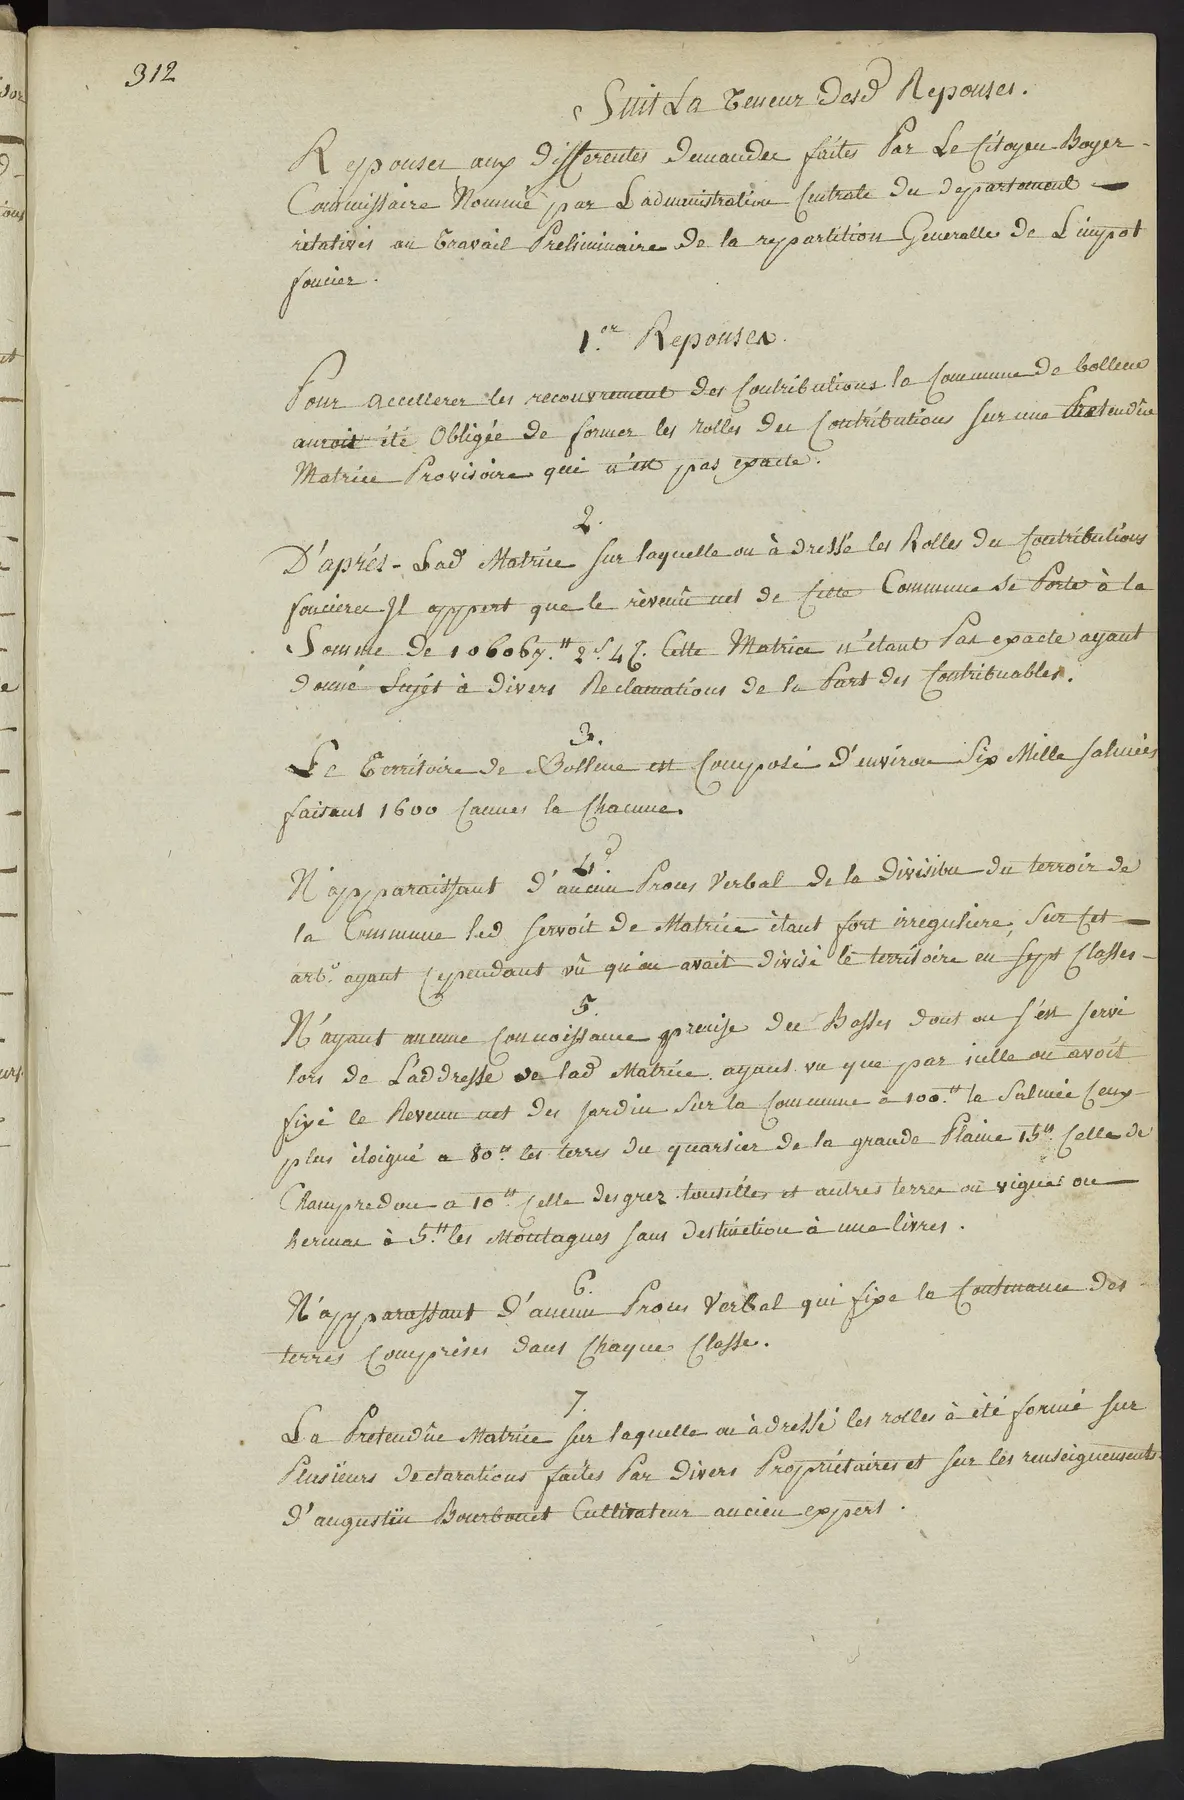 312
Suit La Teneur desd Reponses.
Reponses aux differentes demandes faites Par Le Citoyen Boyer
Commissaire Nommé par L'administration Centrale du departement
relatives au travail Preliminaire de la repartition Generalle de L'impot
foncier.
1.er Reponses.
Pour accellerer les recouvrement des Contributions la Commune de bollene
auroit été Obligée de former les rolles des Contributions sur une Pretendûe
Matrice Provisoire qui n'est pas exacte.
2.
D'aprés Lad Matrice sur laquelle on à dressé les Rolles des Contributions
foncieres Il appert que le révenû net de Cette Commune se Porte à la
Somme de 106067.tt 2.s 4d. Cette Matrice n'étant Pas exacte ayant
donné Sujet à divers Reclamations de la Part des Contribuables.
3.
Le Territoire de Bollene est Composé d'environ Six Mille salmées
faisant 1600 Cannes la Chacune.
4.
N'apparaissant d'aucun Proces Verbal de la division du terroir de
la Commune led servoit de Matrice étant fort irreguliere, Sur Cet
art.e ayant Cependant vû qu'on avait divisé le territoire en sept Classes
5.
N'ayant aucune Connoissance precise des Basses dont on s'est servi
lors de Laddresse de lad Matrice ayant vu que par icelle on avoit
fixé le Revenu net des jardin Sur la Commune à 100.tt la Salmée Ceux
plus éloigué a 80.tt les terres du quartier de la grande Plaine 15.tt Celle de
Champredon a 10.tt Celle des grez tousilles et autres terres ou vignes ou
hermas à 5.tt les Montagnes sans destinction à une livres.
6.
N'apparassant d'aucun Proces Verbal qui fixe la Contenance des
terres Comprises dans Chaque Classe.
7.
La Pretendûe Matrice sur laquelle on à dressé les rolles à été formé sur
Plusieurs declarations faites Par divers Propriétaires et sur les renseignements
d'augustin Bourbouet Cultivateur ancien expert.